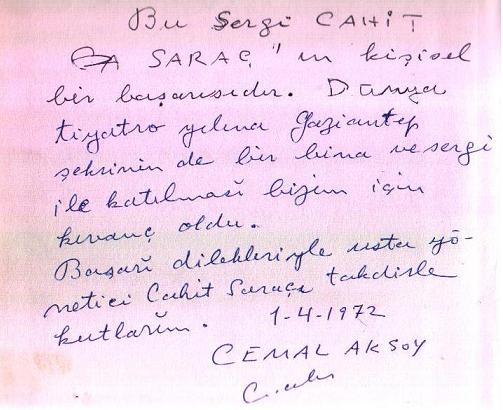 Bu Sergi CAHİT
SARAÇ'ın kişisel
bir başarısıdır. Dünya
tiyatro yılına Gaziantep
şehrinin de bir bina ve sergi
ile katılması bizim için
kıvanç oldu.
Başarı dilekleriyle usta yö-
netici Cahit Saraçı takdirle
kutlarım. 1-4-1972
CEMAL AKSOY